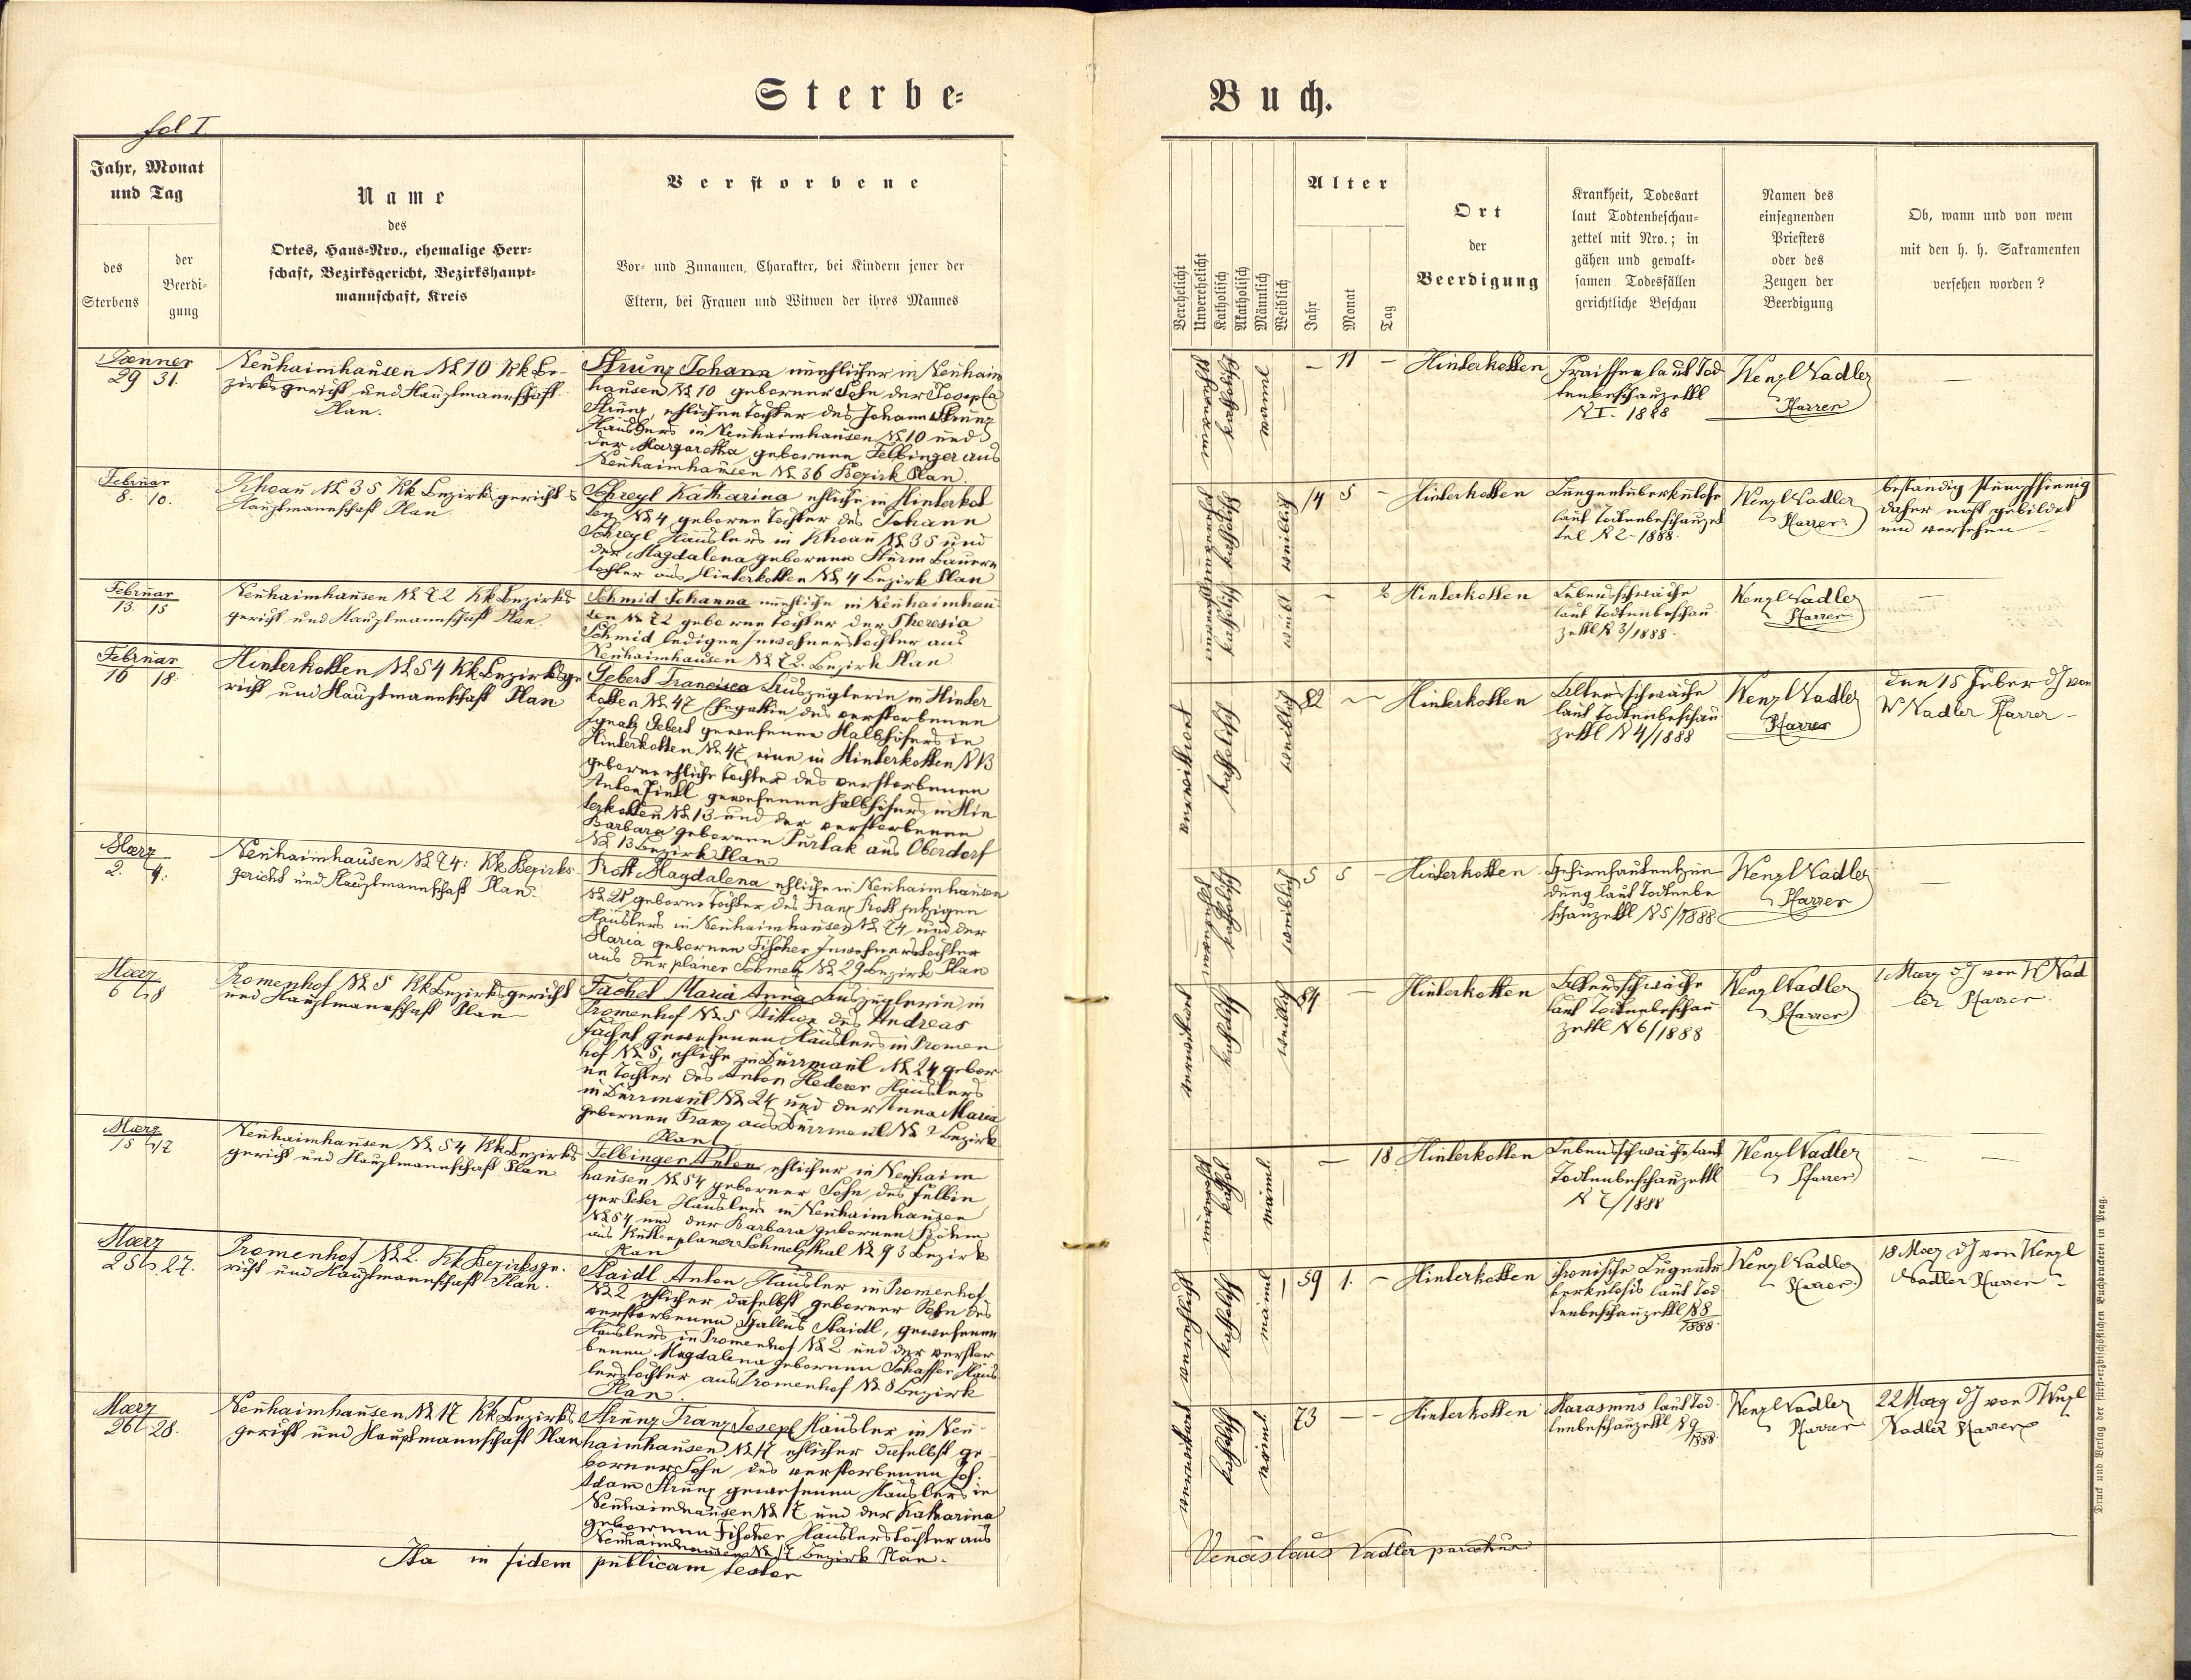 Sterbe-
Buch.
fol I.
Jahr, Monat
und Tag
des
Sterbens
der
Beerdi-
gung
Name
des
Ortes, Haus-Nro., ehemalige Herr-
schaft, Bezirksgericht, Bezirkshaupt-
mannschaft, Kreis
Verstorbene
Vor- und Zunamen, Charakter, bei Kindern jener der
Eltern, bei Frauen und Witwen der ihres Mannes
Verehelicht
Unverehelicht
Katholisch
Akatholisch
Männlich
Weiblich
Alter
Jahr
Monat
Tag
Ort
der
Beerdigung
Krankheit, Todesart
laut Todtenbeschau-
zettel mit Nro.; in
gähen und gewalt-
samen Todesfällen
gerichtliche Beschau
Namen des
einsegnenden
Priesters
oder des
Zeugen der
Beerdigung
Ob, wann und von wem
mit den h. h. Sakramenten
versehen worden?
Jaenner
29 31.
Neuhaimhausen N 10 kk Be-
zirksgericht und Hauptmannschaft
Plan.
Strunz Johann unehlicher in Neuhaim
hausen N 10 geborner Sohn der Josepha
Strunz, ehlichen Tochter des Johann Strunz
Häuslers in Neuhaimhausen N 10 und
der Margaretha gebornen Felbinger aus
Neuhaimhausen N 36 Bezirk Plan.
mannl
– 11 –
Hinterkotten
Fraissen laut Tod
tenbeschauzettl
N I. 1888
Wenzl Nadler
Pfarrer
–
Februar
8. 10.
Khoau N 35 kk Bezirksgericht
Hauptmannschaft Plan.
Schreyl Katharina ehliche in Hinterkot
ten N 4 geborne Tochter des Johann
Schreyl Häuslers in Khoau N 35 und
der Magdalena gebornen Sturm Bauern
tochter aus Hinterkotten N 4 Bezirk Plan
weiblich
14 5 –
Hinterkotten
Lungentuberkulose
laut Todtenbeschauzet
tel N 2-1888.
Wenzl Nadler
Pfarrer
bestandig stumpfsinnig
daher nicht gebildet
und versehen –
Februar
13. 15
Neuhaimhausen N 72 kk Bezirks
gericht und Hauptmannschaft Plan.
Schmid Johanna unehliche in Neuhaimhau
sen N 72 geborne Tochter der Theresia
Schmid ledigen Inwohnerstochter aus
Neuhaimhausen N 72. Bezirk Plan
weibl
– 2
Hinterkotten
Lebensschwäche
laut Todtenbeschau
zettl N 3/1888.
Wenzl Nadler
Pfarrer
–
Februar
16 18.
Hinterkotten N 54 kk Bezirksge
richt und Hauptmannschaft Plan
Gebert Francisca Auszüglerin in Hinter
kotten N 47 Ehegattin des verstorbenen
Ignatz Gebert gewesenen Halbhöfers in
Hinterkotten N 47, eine in Hinterkotten N 13
geborne ehliche Tochter des verstorbenen
Anton gewesenen Halbhöfers in Hin
terkotten N 13 und der verstorbenen
Barbara gebornen Turbak aus Oberdorf
N 13 Bezirk Plan
verwittwet
katholisch
weiblich
82 –
Hinterkotten
Altersschwäche
laut Todtenbeschau
zettl N 4/1888
Wenzl Nadler
Pfarrer
den 15 Feber dJ von
W Nadler Pfarrer –
Maerz
2. 4.
Neuhaimhausen N 74: kk Bezirks
gericht und Hauptmannschaft Plan.
Rott Magdalena ehliche in Neuhaimhausen
N 21 geborne Tochter des Franz Rott jetzigen
Häuslers in Neuhaimhausen N 74 und der
Maria gebornen Fischer Inwohnerstochter
aus der planer Schmelz N 29 Bezirk Plan
weiblich
5 5 –
Hinterkotten
Gehirnhautentzün
dung laut Todtenbe
schauzettl N 5/1888
Wenzl Nadler
Pfarrer
–
Maerz
6 8
Promenhof N 5 kk Bezirksgericht
und Hauptmannschaft Plan
Fächel Maria Anna Auszüglerin in
Promenhof N 5 Wittwe des Andreas
Fächel gewesenen Häuslers in Promen
hof N 5, ehliche in Dürrmaul N 24 gebor
ne Tochter des Anton Hederer Häuslers
in Dürrmaul N 24 und der Anna Maria
gebornen Franz aus Dürrmaul N 2 Bezirk
Plan
verwittwet
katholisch
weiblich
84 –
Hinterkotten
Altersschwäche
laut Todtenbeschau
zettl N 6/1888
Wenzl Nadler
Pfarrer
1 Maerz dJ von W Nad
ler Pfarrer.
Maerz
15 17
Neuhaimhausen N 54 kk Bezirks
gericht und Hauptmannschaft Plan
Felbinger Anton ehlicher in Neuhaim
hausen N 54 geborner Sohn des Felbin
ger Peter Häuslers in Neuhaimhausen
N 54 und der Barbara gebornen Böhm
aus Kuttenplaner Schmelzthal N 93 Bezirk
Plan
kathol
mannl
– 18
Hinterkotten
Lebensschwäche laut
Todtenbeschauzettl
N 7/1888
Wenzl Nadler
Pfarrer
– –
Maerz
25 27.
Promenhof N 2. kk Bezirksge-
richt und Hauptmannschaft Plan.
Staidl Anton Häusler in Promenhof
N 2 ehlicher daselbst geborner Sohn des
verstorbenen Gallus Staidl, gewesenen
Häuslers in Promenhof N 2 und der verstor
benen Magdalena gebornen Schaffer Häus
lerstochter aus Promenhof N 8 Bezirk
Plan.
verehlicht
katholisch
mannl
59 1. –
Hinterkotten
chronische Lugentu
berkulosis laut Tod
tenbeschauzettl N 8
1888.
Wenzl Nadler
Pfarrer
18 Maerz dJ von Wenzl
Nadler Pfarrer –
Maerz
26 28.
Neuhaimhausen N 17 kk Bezirks
gericht und Hauptmannschaft Plan
Strunz Franz Joseph Häusler in Neu-
haimhausen N 17 ehlicher daselbst ge-
borner Sohn des verstorbenen Joh.
Adam Strunz gewesenen Häuslers in
Neuhaimhausen N 17 und der Katharina
gebornen Fischer Häuslerstochter aus
Neuhaimhausen N 17 Bezirk Plan.
verwittwet
katholisch
mannl
73 – –
Hinterkotten
Marasmus laut Tod
tenbeschauzettl N 9
1888
Wenzl Nadler
Pfarrer
22 Maerz dJ von Wenzl
Nadler Pfarrer
Ita in fidem publicam testor
Venceslaus Nadler parochus
Druck und Verlag der fürst-erzbischöflichen Buchdruckerei in Prag.